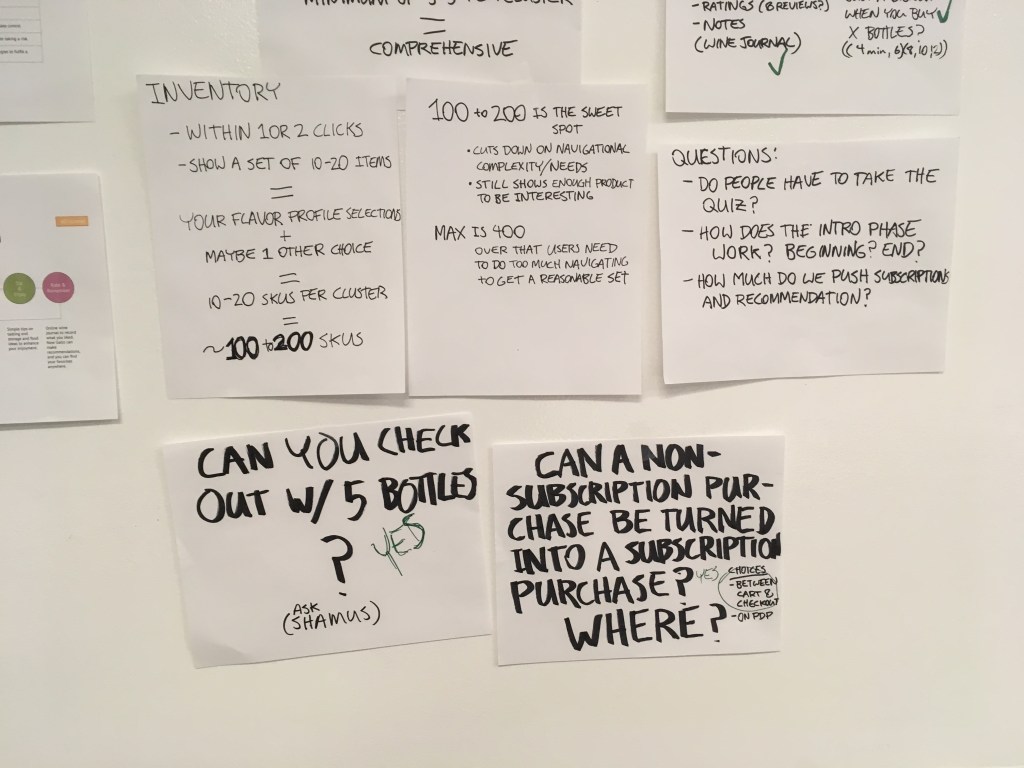 =
COMPREHENSIVE
- RATINGS (8 REVIEWS?)
- NOTES
(WINE JOURNAL)
WHEN YOU BUY
X BOTTLES?
INVENTORY
- WITHIN 1 OR 2 CLICKS
- SHOW A SET OF 10-20 ITEMS
=
YOUR FLAVOR PROFILE SELECTIONS
+
MAYBE 1 OTHER CHOICE
=
10-20 SKUS PER CLUSTER
=
~100 to 200 SKUS
100 to 200 IS THE SWEET
SPOT
• CUTS DOWN ON NAVIGATIONAL
COMPLEXITY/NEEDS
• STILL SHOWS ENOUGH PRODUCT
TO BE INTERESTING
MAX IS 400
OVER THAT USERS NEED
TO DO TOO MUCH NAVIGATING
TO GET A REASONABLE SET
QUESTIONS:
- DO PEOPLE HAVE TO TAKE THE
QUIZ?
- HOW DOES THE INTRO PHASE
WORK? BEGINNING? END?
- HOW MUCH DO WE PUSH SUBSCRIPTIONS
AND RECOMMENDATION?
CAN YOU CHECK
OUT W/ 5 BOTTLES
?
YES
(ASK
SHAMUS)
CAN A NON-
SUBSCRIPTION PUR-
CHASE BE TURNED
INTO A SUBSCRIPTION
PURCHASE? YES
WHERE?
CHOICES
- BETWEEN
CART &
CHECKOUT
- ON PDP